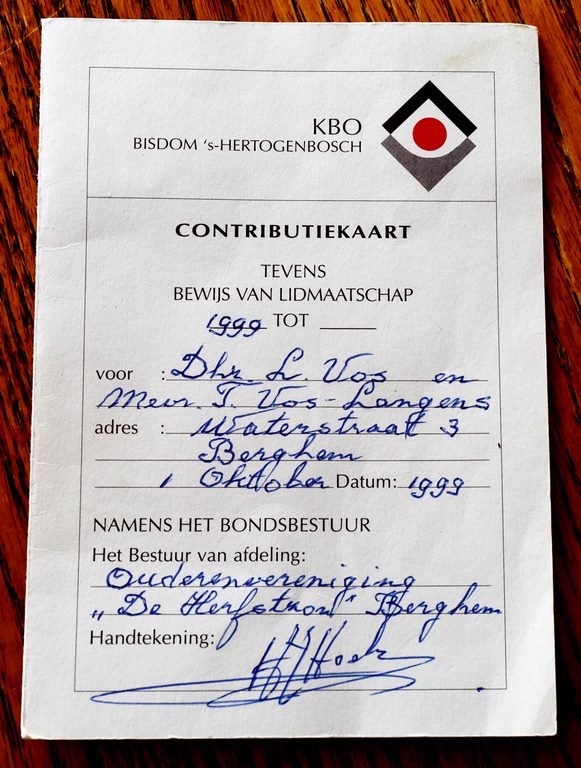 KBO
BISDOM 's-HERTOGENBOSCH
CONTRIBUTIEKAART
TEVENS
BEWIJS VAN LIDMAATSCHAP
1999 TOT
voor : Dhr. L. Vos en
Mevr. T. Vos-Langens
adres : Waterstraat 3
Berghem
1 Oktober Datum: 1999
NAMENS HET BONDSBESTUUR
Het Bestuur van afdeling:
Ouderenvereniging
„De Herfstzon" Berghem
Handtekening: